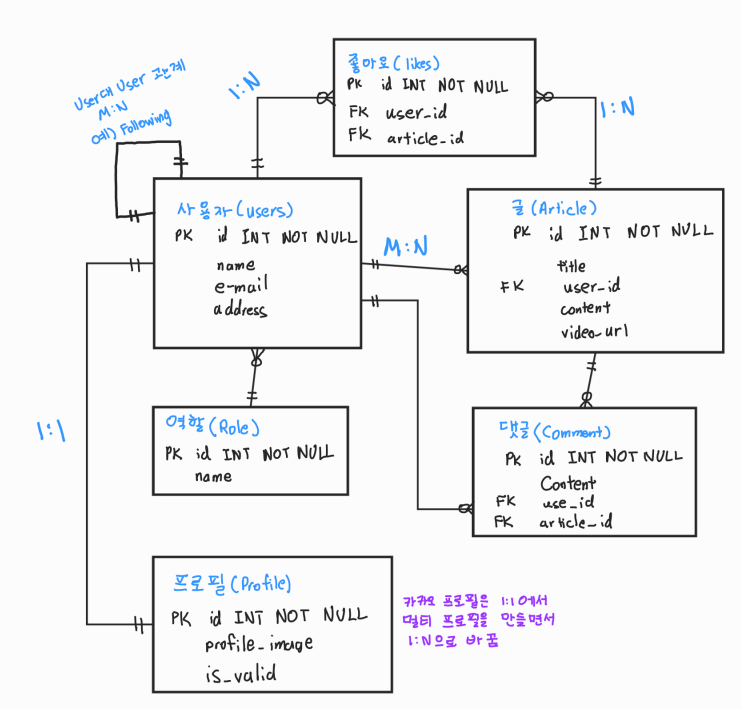 좋아요(likes)
PK id INT NOT NULL
FK user_id
FK article_id
1:N
1:N
User대 User 관계
M:N
예) Following
사용자(users)
PK id INT NOT NULL
name
e-mail
address
M:N
글(Article)
PK id INT NOT NULL
title
FK user_id
content
video_url
1:1
역할(Role)
PK id INT NOT NULL
name
댓글(Comment)
PK id INT NOT NULL
Content
FK use_id
FK article_id
프로필(Profile)
PK id INT NOT NULL
profile_image
is_valid
카카오 프로필은 1:1에서
멀티 프로필을 만들면서
1:N으로 바꿈